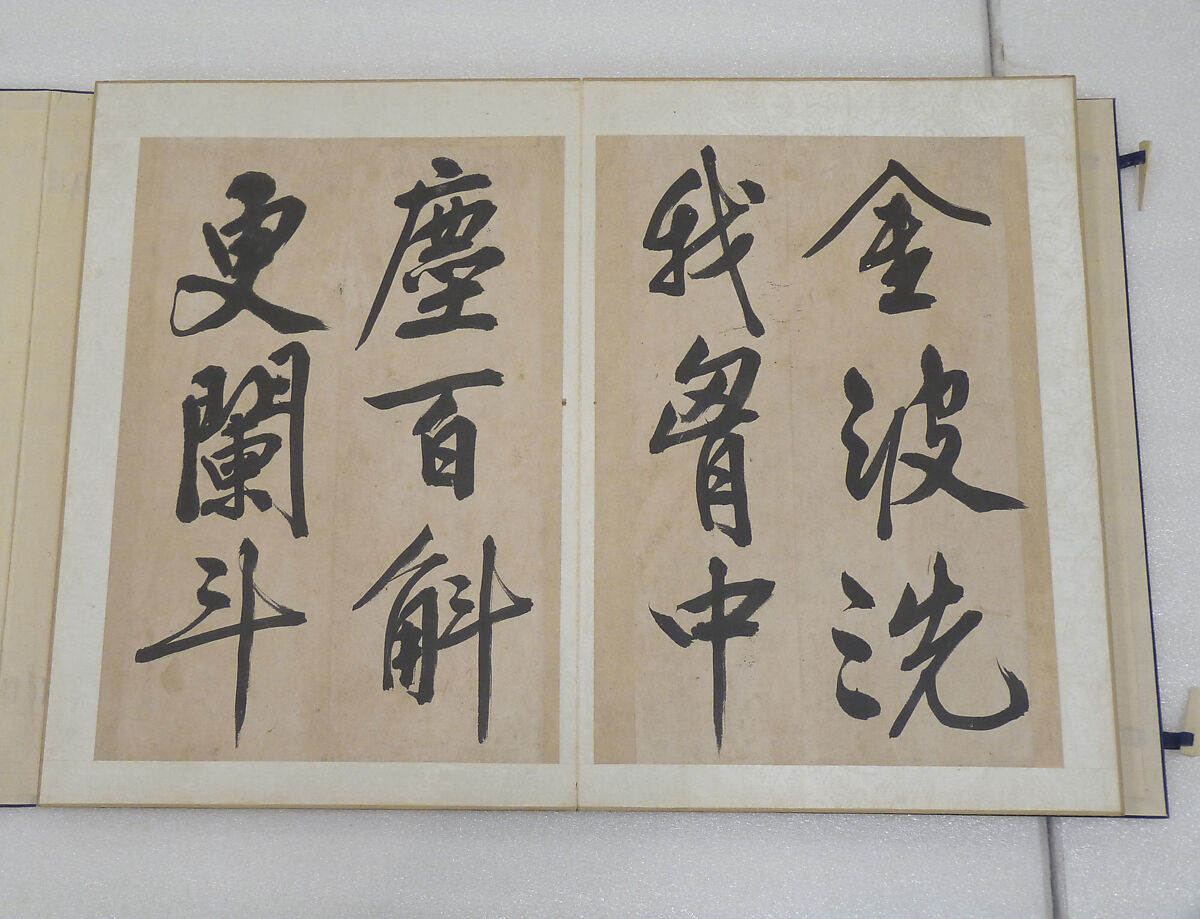 金波洗
我胷中
塵百斛
更闌斗